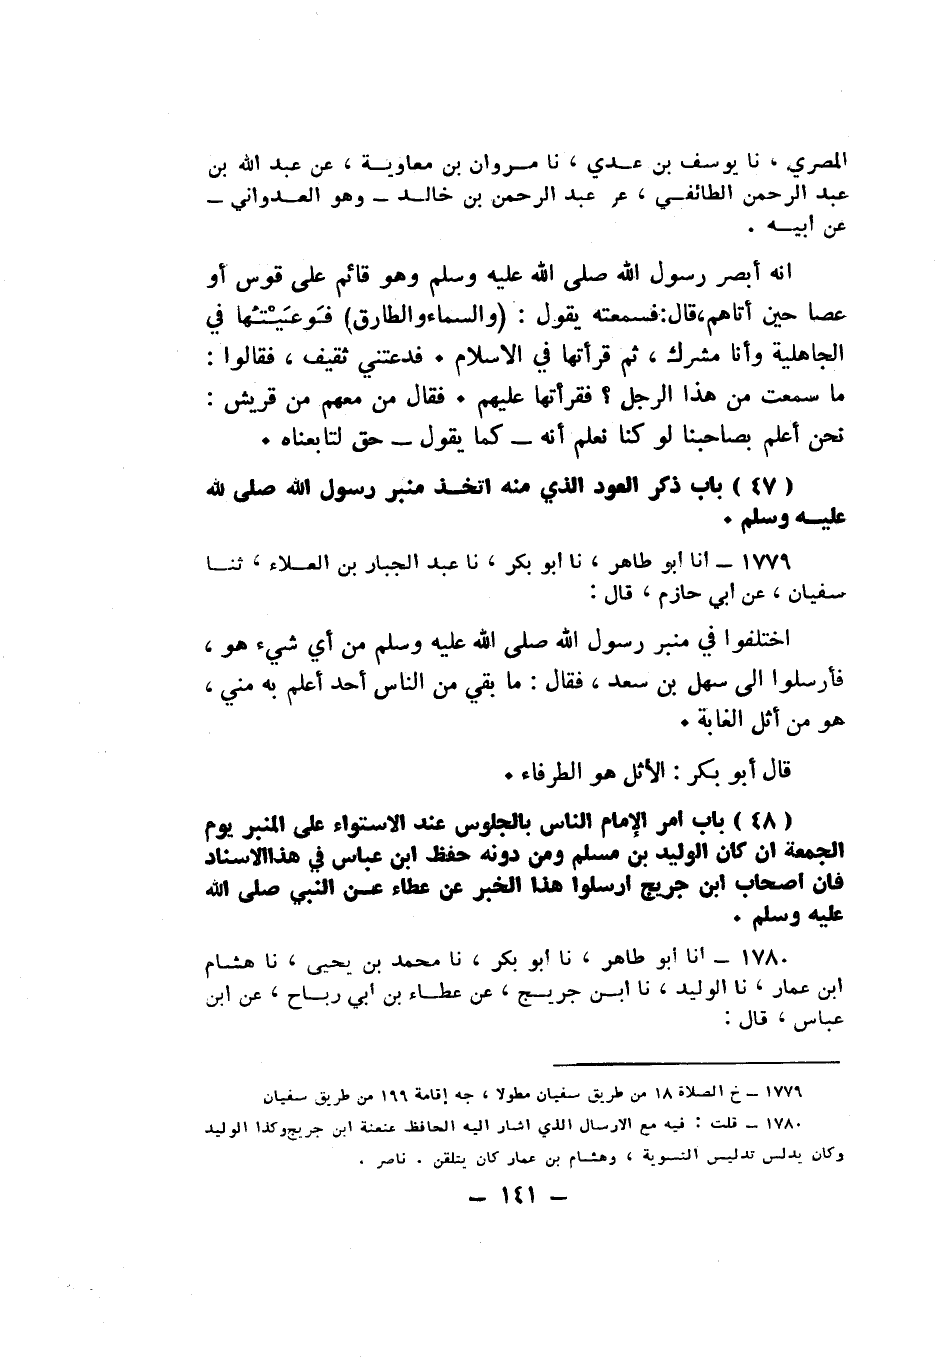 المصري ، نا يوسف بن عدي ، نا مروان بن معاوية ، عن عبد الله بن
عبد الرحمن الطائفي ، عر عبد الرحمن بن خالد ـ وهو العدواني ـ
عن ابيه .
انه أبصر رسول الله صلى الله عليه وسلم وهو قائم على قوس أو
عصا حين أتاهم،قال:فسمعته يقول : (والسماءوالطارق) فَوعَيْتُها في
الجاهلية وأنا مشرك ، ثم قرأتها في الاسلام . فدعتني ثقيف ، فقالوا :
ما سمعت من هذا الرجل ؟ فقرأتها عليهم . فقال من معهم من قريش :
نحن أعلم بصاحبنا لو كنا نعلم أنه ـ كما يقول ـ حق لتابعناه .
( ٤٧ ) باب ذكر العود الذي منه اتخذ منبر رسول الله صلى لله
عليه وسلم .
١٧٧٩ ـ أنا أبو طاهر ، نا أبو بكر ، نا عبد الجبار بن العلاء ، ثنا
سفيان ، عن أبي حازم ، قال :
اختلفوا في منبر رسول الله صلى الله عليه وسلم من أي شيء هو ،
فأرسلوا الى سهل بن سعد ، فقال : ما بقي من الناس أحد أعلم به مني ،
هو من أثل الغابة .
قال أبو بكر : الأثل هو الطرفاء .
( ٤٨ ) باب امر الإمام الناس بالجلوس عند الاستواء على المنبر يوم
الجمعة ان كان الوليد بن مسلم ومن دونه حفظ ابن عباس في هذاالاسناد
فان اصحاب ابن جريج ارسلوا هذا الخبر عن عطاء عن النبي صلى الله
عليه وسلم .
١٧٨٠ ـ أنا أبو طاهر ، نا أبو بكر ، نا محمد بن يحيى ، نا هشام
ابن عمار ، نا الوليد ، نا ابن جريج ، عن عطاء بن أبي رباح ، عن ابن
عباس ، قال :
١٧٧٩ ـ خ الصلاة ١٨ من طريق سفيان مطولا ، جه إقامة ١٩٩ من طريق سفيان
١٧٨٠ ـ قلت : فيه مع الارسال الذي اشار اليه الحافظ عنعنة ابن جريج،وكذا الوليد
وكان يدلس تدليس التسوية ، وهشام بن عمار كان يتلقن . ناصر .
ـ ١٤١ ـ